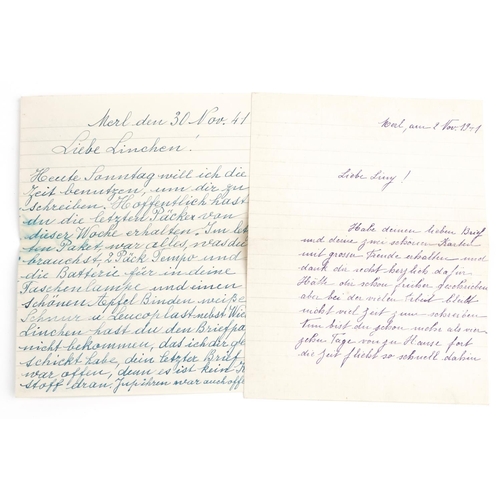 Merl den 30 Nov. 41
Liebe Linchen!
Heute Sonntag will ich die
Zeit benutzen, um dir zu
schreiben. Hoffentlich hast
du die letzten Päcker von
dieser Woche erhalten. Im let
ten Paket, war alles, was du
brauchst, 2 Päck Tempo und
die Batterie für in deine
Taschenlampe und einen
schönen Apfel Binden weiße
Schnur u Leucoplast nebst Wie
Linchen hast du den Briefpa
nicht bekommen, das ich dir ge
schickt habe, dein letzter Brief
war offen, denn es ist kein
stoff dran. war auch offe
Merl, am 2 Nov. 1941
Liebe Liny!
Habe deinen lieben Brief
und deine zwei schönen Karten
mit grosser Freude erhalten und
dank dir recht herzlich dafür
Hätte dir schon früher geschrieben
aber bei der vielen Arbeit bleibt
nicht viel Zeit zum schreiben
Nun bist du schon mehr als vier
zehn Tage von zu Hause fort
die Zeit flieht so schnell dahin